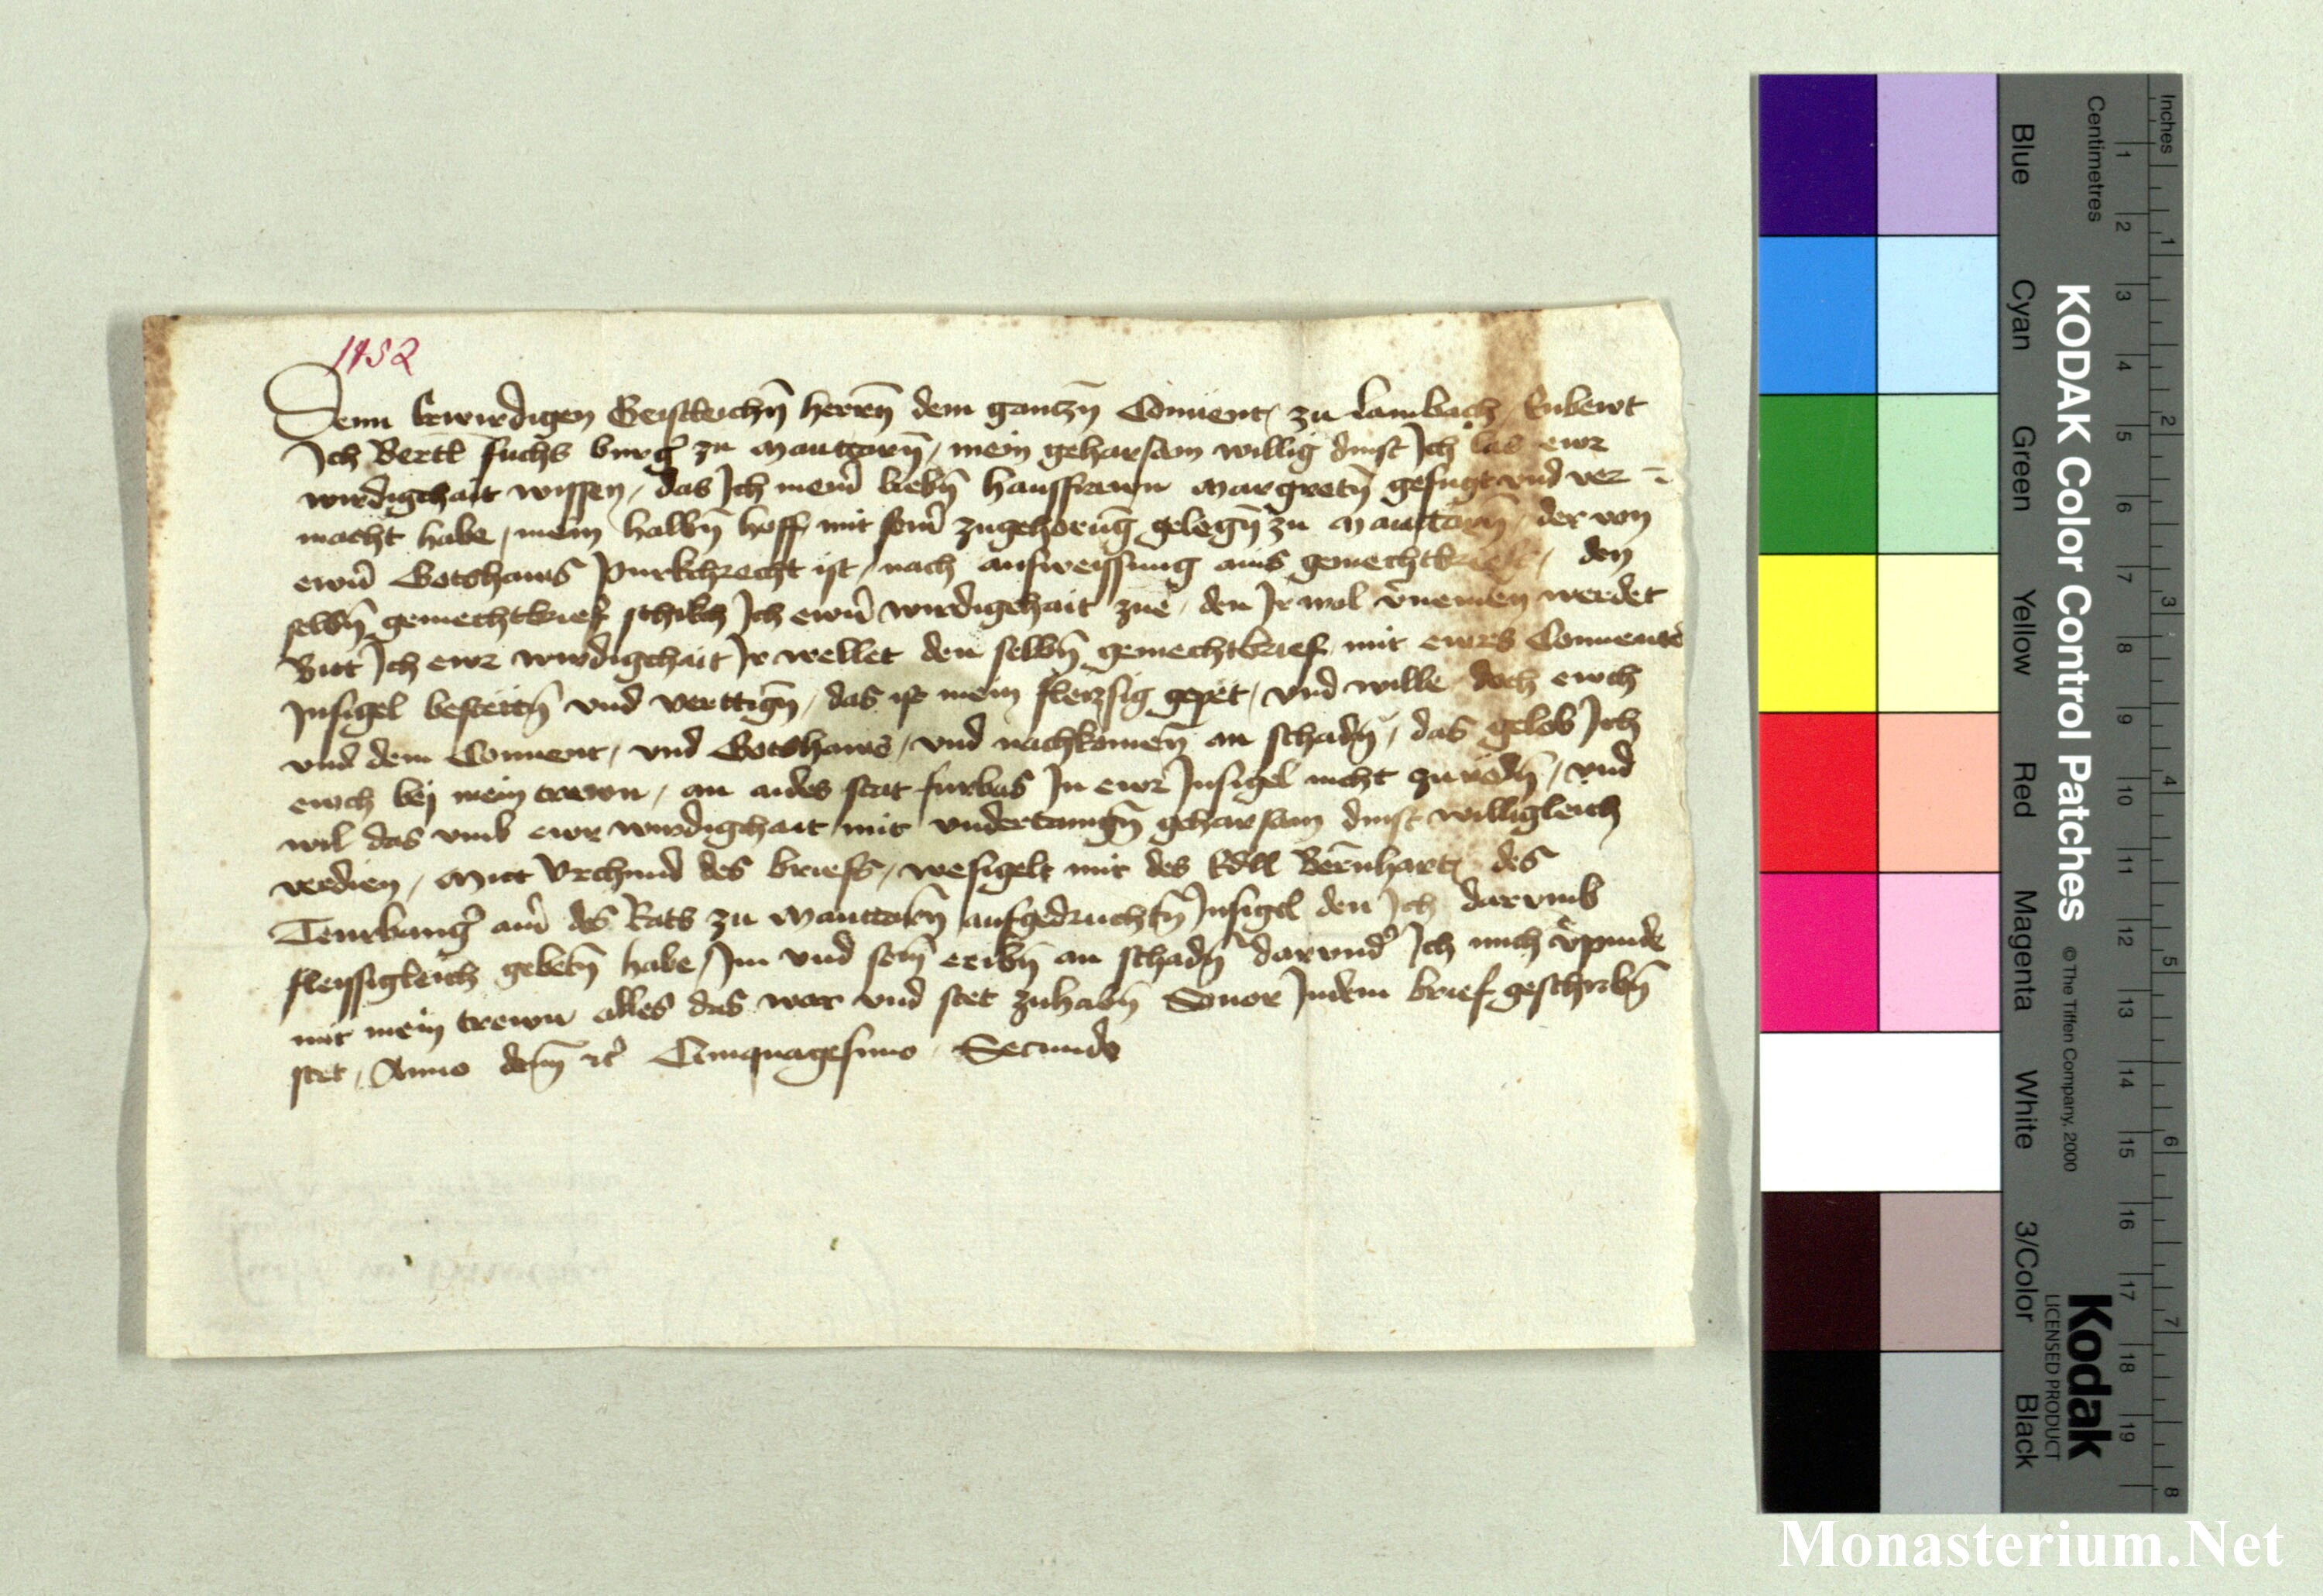 1452
Denn Erwirdigen Geistleichn̄ herrn̄ dem gantzn̄ Conuent / zu Lambach / Enbewt
Ich Bertl fuchs burg̓ zu Mauttarn̄ / mein geharsam willig dinst Ich las ewr
wirdigchait wissen / das Ich mein̄ liebn̄ haussfrawn Margretn̄ gefugt vnd ver-
macht habe / mein halbn̄ hoff mit sein̄ zugehorūg gelegn̄ zu Mauttarn̄ / der von
ewrn̄ Gotshaws Purkchrecht ist / nach aufweissung ains gemechtbriefs / den
selbn̄ gemechtbrief schikch Ich ewr̄ wirdigchait zue / den Ir wol v̄nemen werdet
Bit Ich ewr wirdigchait Ir wellet den selbn̄ gemechtbrief mit ewrs Conuents
Insigel bestettn̄ vnd verttign̄ / das ist mein fleizsig gepet / vnd wille doch ewch
vnd dem Conuent / vnd Gotshaws / vnd nachkomen̄ an schadn̄ / das gelob Ich
ewch bej mein trewn / an aides stat furbas In ewr Insigel nicht zu redn̄ / vnd
wil das vmb ewr wirdigchait mit vndertanign̄ geharsam dinst willigleich
verdien / Mit Vrchund des briefs / wesigelt mit des Edll Bern̄hart des
Teurbang̓ ain̄ des Rats zu Mauttarn̄ aufgedruchtn̄ Insigel den Ich darvmb
fleissigleich gebetn̄ habe / Im vnd sein̄ eribn̄ an schadn̄ darvnd̓ Ich mich v̓pinde
mit mein trewn alles das war vnd stet zuhabn̄ Souor Indem brief geschribn̄
stet / Anno domī etc̓ Quinquagesimo Secundo
KODAK Color Control Patches
© The Tiffen Company, 2000
Kodak
LICENSED PRODUCT
Inches
Centimetres
1 2 3 4 5 6 7 8
1 2 3 4 5 6 7 8 9 10 11 12 13 14 15 16 17 18 19
Blue
Cyan
Green
Yellow
Red
Magenta
White
3/Color
Black
Monasterium.Net